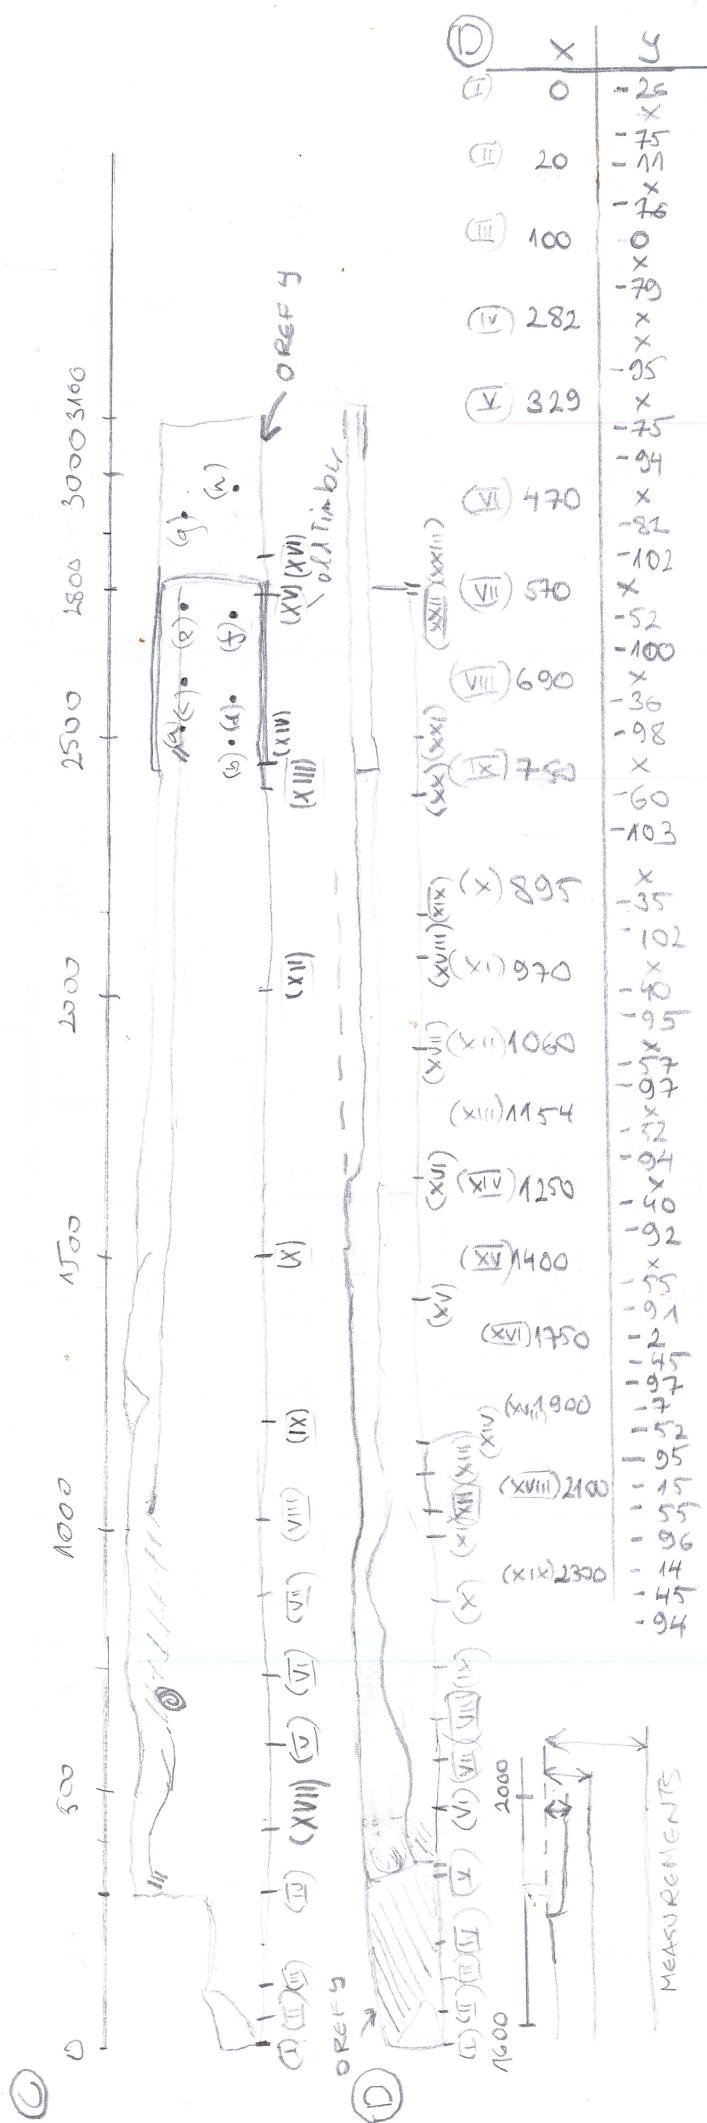 C
0 500 1000 1500 2000 2500 2800 3000 3100
(g)
(h)
(a) (c) (e)
(b) (d) (f)
O REF Y
(I) (II) (III) (IV) (XVII) (V) (VI) (VII) (VIII) (IX) (X) (XII) (XIII) (XIV) (XV) (XVI)
old Timber
O REF Y
D
(I) (II) (III) (IV) (V) (VI) (VII) (VIII) (IX) (X) (XI) (XII) (XIII) (XIV) (XV) (XVI) (XVII) (XVIII) (XIX) (XX) (XXI) (XXII) (XXIII)
1600 2000
MEASUREMENTS
D X Y
(I) 0 -26 X -75
(II) 20 -11 X -76
(III) 100 0 X -79
(IV) 282 X X -95
(V) 329 X -75 -94
(VI) 470 X -81 -102
(VII) 570 X -52 -100
(VIII) 690 X -36 -98
(IX) 750 X -60 -103
(X) 895 X -35 -102
(XI) 970 X -40 -95
(XII) 1060 X -57 -97
(XIII) 1154 X -52 -94
(XIV) 1250 X -40 -92
(XV) 1400 X -55 -91
(XVI) 1750 -2 -45 -97
(XVII) 1900 -77 -52 -95
(XVIII) 2100 -15 -55 -96
(XIX) 2300 -14 -45 -94